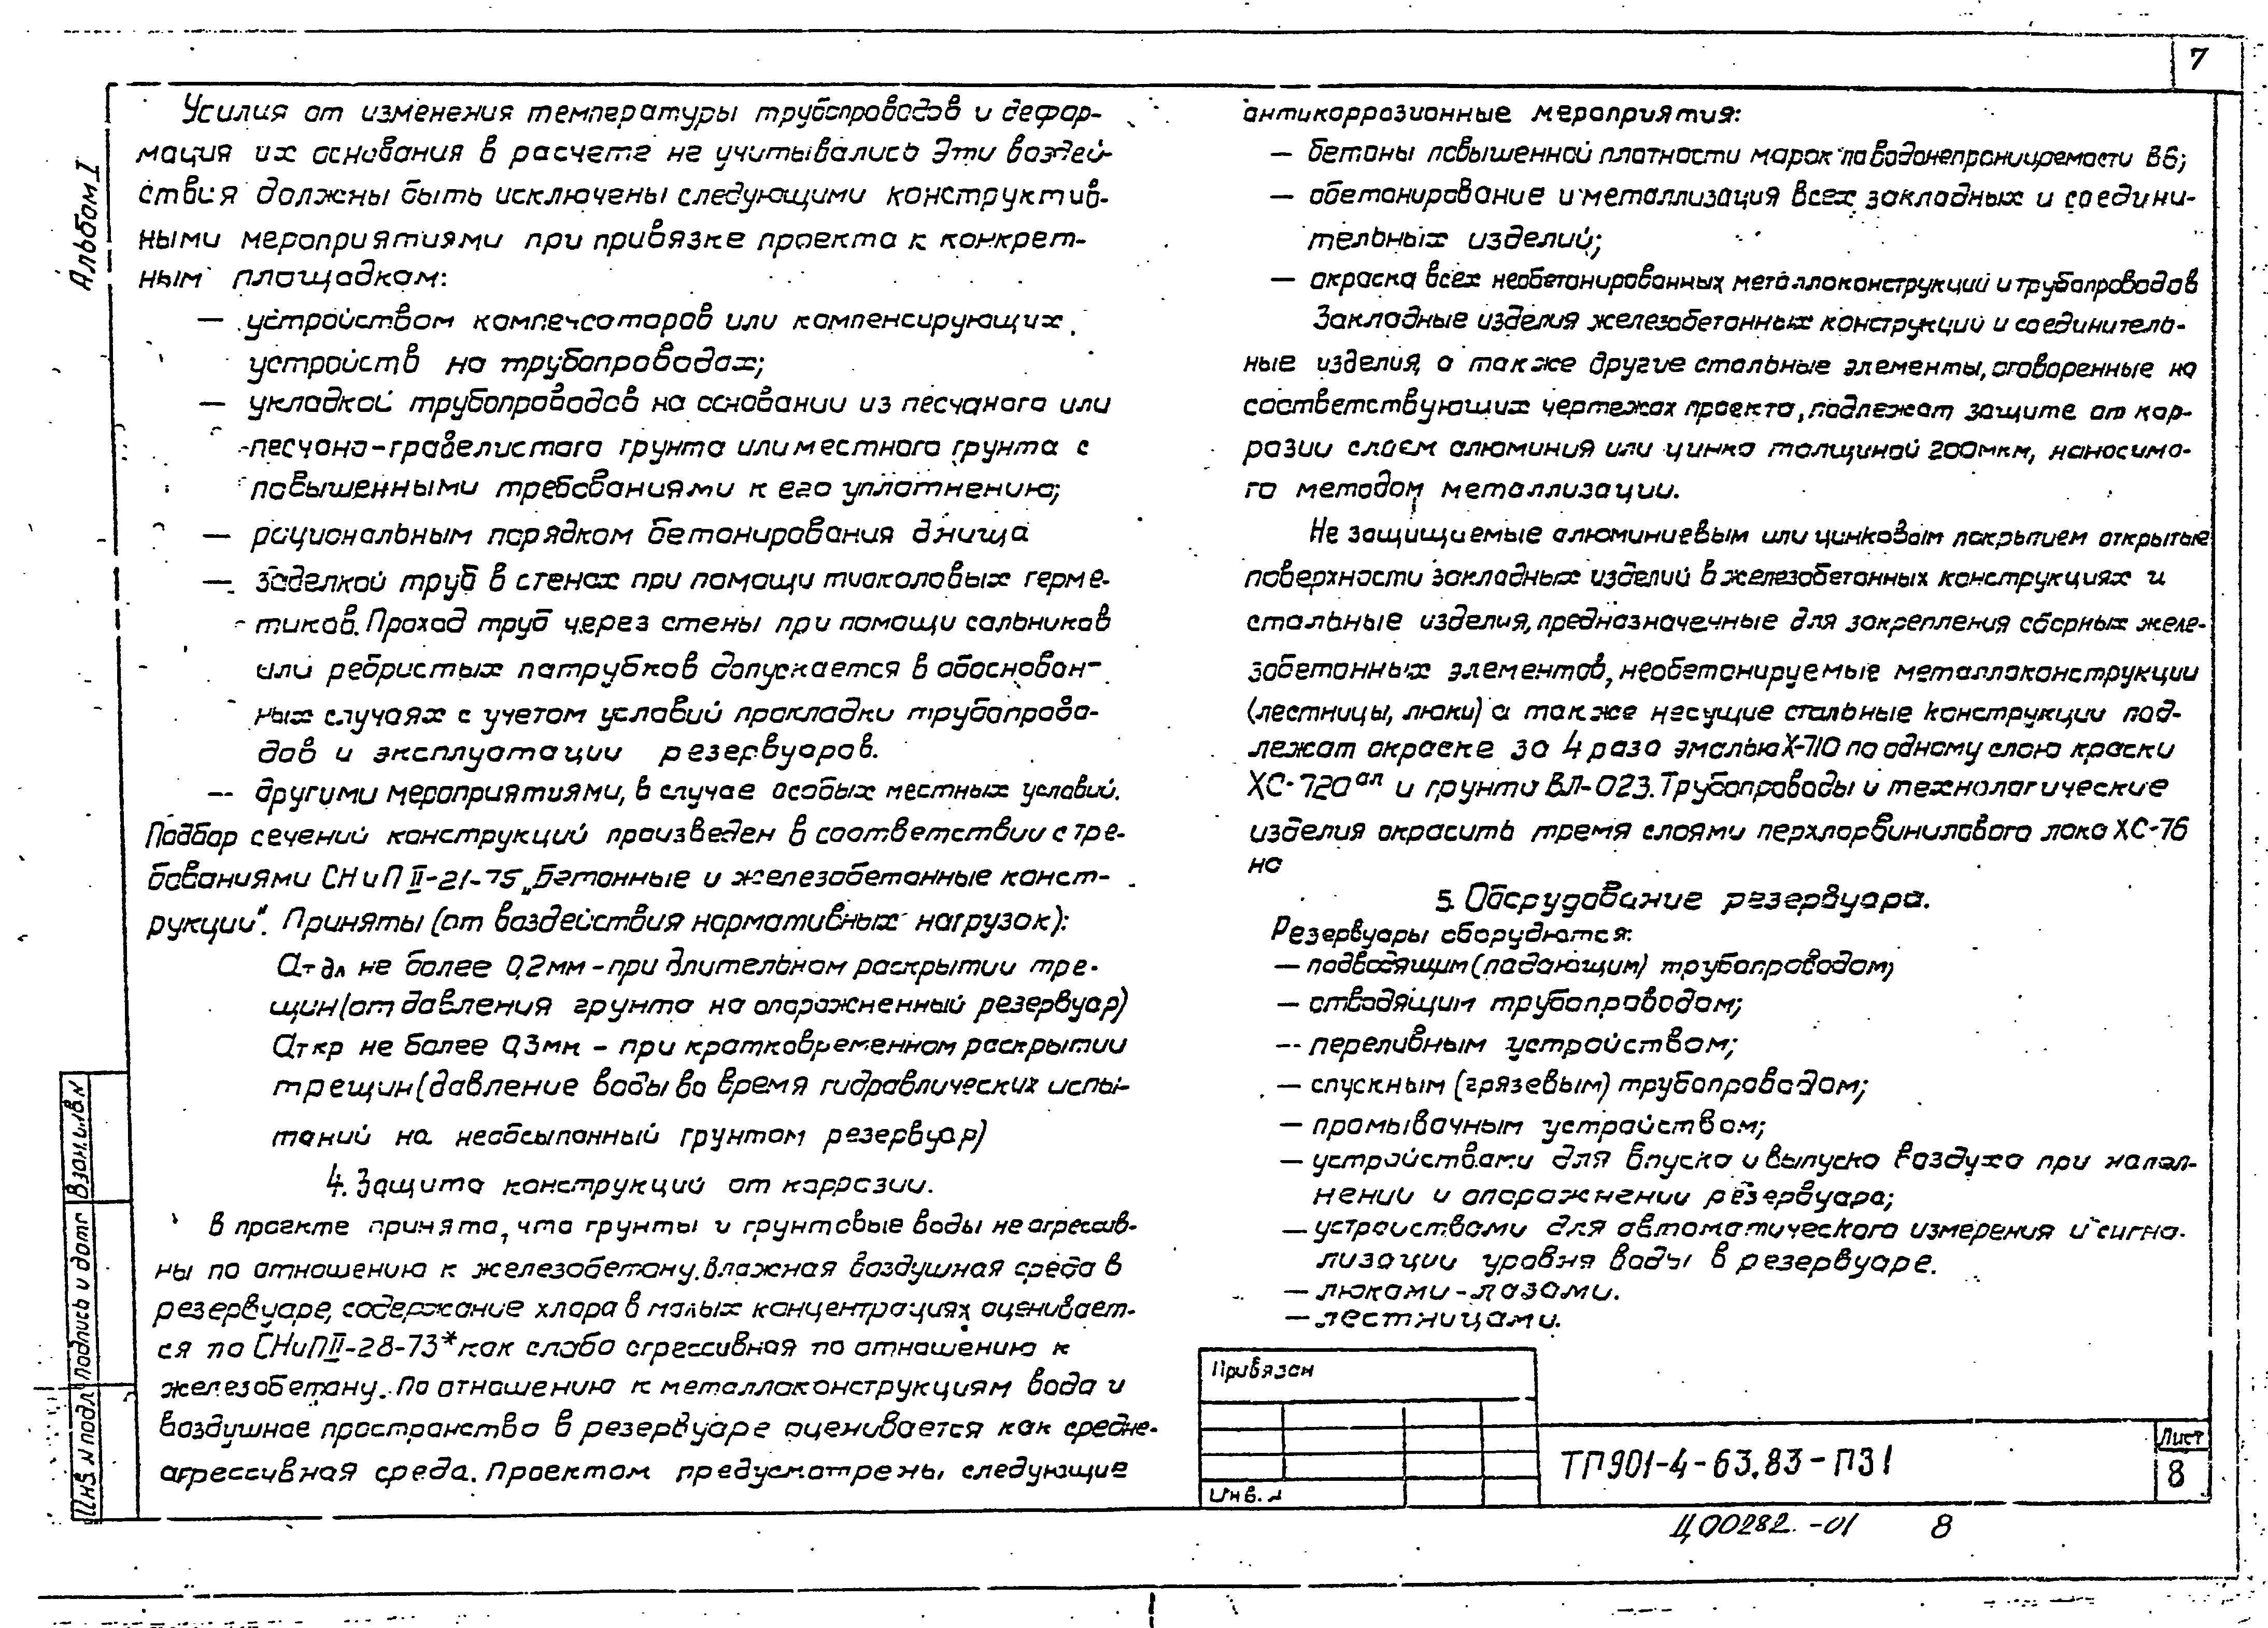 7
Альбом I
Усилия от изменения температуры трубопроводов и дефор-
мация их основания в расчете не учитывались Эти воздей-
ствия должны быть исключены следующими конструктив-
ными мероприятиями при привязке проекта к конкрет-
ным площадкам:
— устройством компенсаторов или компенсирующих
устройств на трубопроводах;
— укладкой трубопроводов на основании из песчаного или
песчано-гравелистого грунта или местного грунта с
повышенными требованиями к его уплотнению;
— рациональным порядком бетонирования днища
— заделкой труб в стенах при помощи тиоколовых герме-
тиков. Проход труб через стены при помощи сальников
или ребристых патрубков допускается в обоснован-
ных случаях с учетом условий прокладки трубопрово-
дов и эксплуатации резервуаров.
— другими мероприятиями, в случае особых местных условий.
Подбор сечений конструкций произведен в соответствии с тре-
бованиями СНиП II-21-75 „Бетонные и железобетонные конст-
рукции". Приняты (от воздействия нормативных нагрузок):
Aт дл не более 0,2мм - при длительном раскрытии тре-
щин (от давления грунта на опорожненный резервуар)
Aт кр не более 0,3мм - при кратковременном раскрытии
трещин (давление воды во время гидравлических испы-
таний на необсыпанный грунтом резервуар)
4. Защита конструкций от коррозии.
В проекте принято, что грунты и грунтовые воды не агрессив-
ны по отношению к железобетону. Влажная воздушная среда в
резервуаре, содержание хлора в малых концентрациях оценивает-
ся по СНиП II-28-73* как слабо агрессивная по отношению к
железобетону. По отношению к металлоконструкциям вода и
воздушное пространство в резервуаре оценивается как средне-
агрессивная среда. Проектом предусмотрены следующие
антикоррозионные мероприятия:
— бетоны повышенной плотности марок по водонепроницаемости В6;
— обетонирование и металлизация всех закладных и соедини-
тельных изделий;
— окраска всех необетонированных металлоконструкций и трубопроводов
Закладные изделия железобетонных конструкций и соединитель-
ные изделия, а также другие стальные элементы, оговоренные на
соответствующих чертежах проекта, подлежат защите от кор-
розии слоем алюминия или цинка толщиной 200мкм, наносимо-
го методом металлизации.
Не защищаемые алюминиевым или цинковым покрытием открытые
поверхности закладных изделий в железобетонных конструкциях и
стальные изделия, предназначенные для закрепления сборных желе-
зобетонных элементов, необетонируемые металлоконструкции
(лестницы, люки) а также несущие стальные конструкции под-
лежат окраске за 4 раза эмалью Х-710 по одному слою краски
ХС-720ал и грунта ВЛ-023. Трубопроводы и технологические
изделия окрасить тремя слоями перхлорвинилового лака ХС-76
на
5. Оборудование резервуара.
Резервуары оборудются:
— подводящим (подающим) трубопроводом;
— отводящим трубопроводом;
— переливным устройством;
— спускным (грязевым) трубопроводом;
— промывочным устройством;
— устройствами для впуска и выпуска воздуха при напол-
нении и опорожнении резервуара;
— устройствами для автоматического измерения и сигна-
лизации уровня воды в резервуаре.
— люками-лазами.
— лестницами.
Привязан
Инв. N
ТП901-4-63.83-ПЗ1
Лист
8
Инв N подл
Подпись и дата
Взам. инв. N
Ц00282-01 8